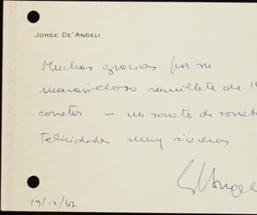 JORGE DE'ANGELI
Muchas gracias por su
maravilloso ramillete de 19
sonetos — un soneto de soneto
Felicidades muy sinceras
19/12/62